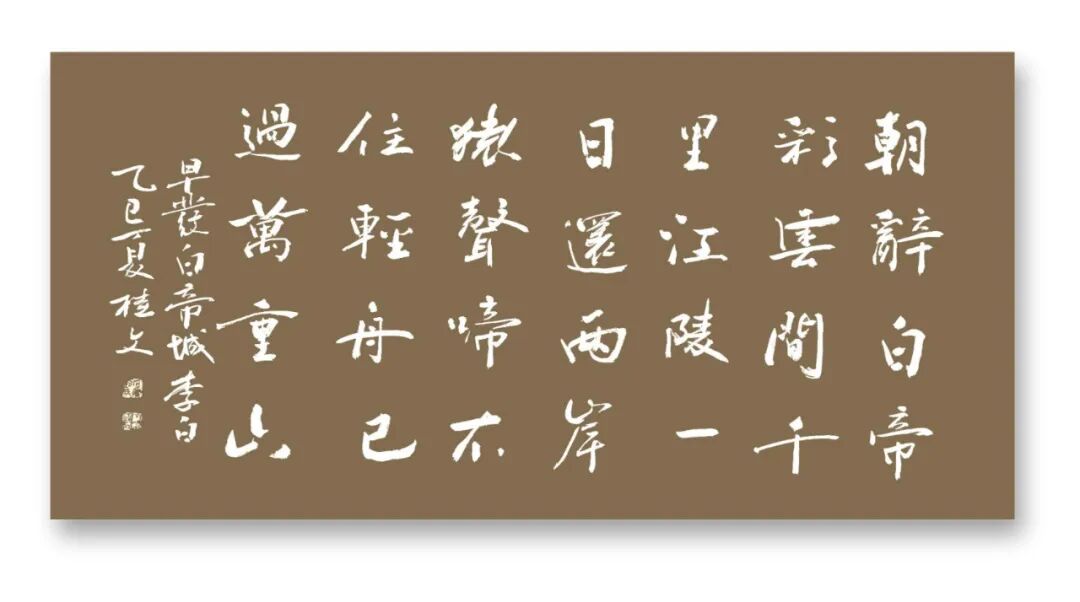 朝辭白帝
彩雲間千
里江陵一
日還兩岸
猿聲啼不
住輕舟已
過萬重山
早發白帝城李白
乙巳夏桂文